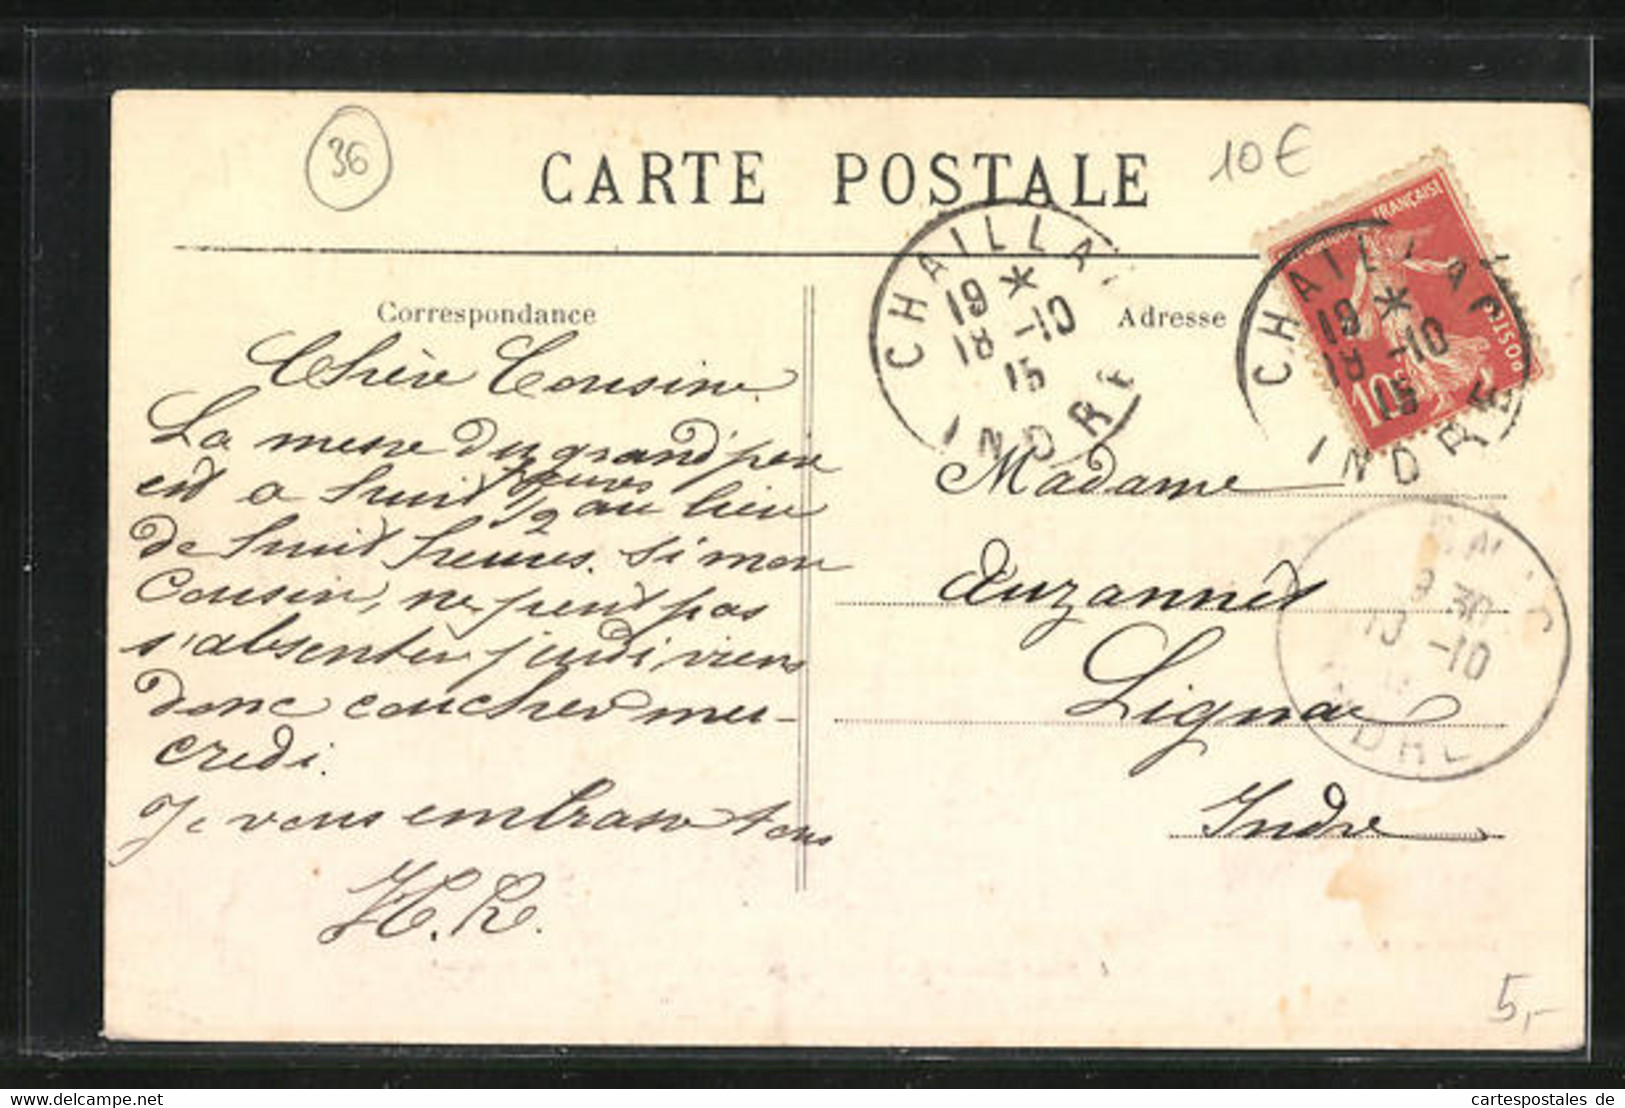 36
CARTE POSTALE
10€
FRANÇAISE
POSTES
10c
CHAILLAC
19 *
18 -10
15
INDRE
CHAILLAC
19 *
18 -10
15
INDRE
Correspondance
Adresse
Chère Cousine
La messe du grand'père
est a huit heures
1/2 au lieu
de huit heures. Si mon
Cousin, ne peut pas
s'absenter jeudi viens
donc coucher mer-
credi.
Je vous embrasse tous
H. R.
Madame
Auzannet
Lignac
Indre
9 30
19 -10
INDRE
5,-
cartespostales de